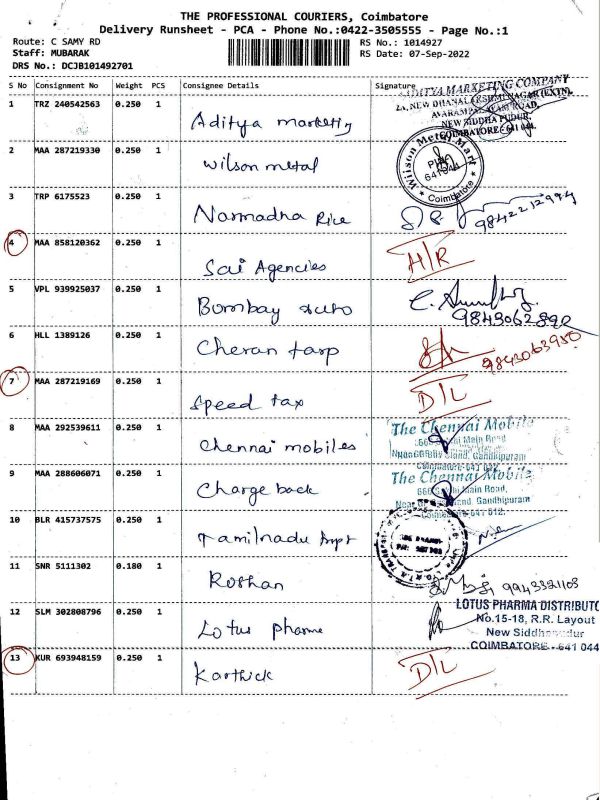 THE PROFESSIONAL COURIERS, Coimbatore
Delivery Runsheet - PCA - Phone No.:0422-3505555 - Page No.:1
Route: C SAMY RD
RS No.: 1014927
Staff: MUBARAK
RS Date: 07-Sep-2022
DRS No.: DCJB101492701
S No Consignment No Weight PCS Consignee Details Signature
1 TRZ 240542563 0.250 1 Aditya marketing
ADITYA MARKETING COMPANY
2A, NEW DHANALAKSHMI NAGAR (EXTN),
AVARAMPALAYAM ROAD,
NEW SIDDHA PUDUR,
COIMBATORE - 641 044.
2 MAA 287219330 0.250 1 Wilson metal
Wilson Metal Mart
Coimbatore
3 TRP 6175523 0.250 1 Narmadha Rice
9842212994
4 MAA 858120362 0.250 1 Sai Agencies H/R
5 VPL 939925037 0.250 1 Bombay auto
9843062890
6 HLL 1389126 0.250 1 Cheran tarp
9843063950
7 MAA 287219169 0.250 1 Speed tax D/L
8 MAA 292539611 0.250 1 Chennai mobiles
The Chennai Mobile
Main Road
Gandhipuram
Coimbatore-641 012.
9 MAA 288606071 0.250 1 Charge back
The Chennai Mobile
Main Road,
Gandhipuram
Coimbatore-641 012.
10 BLR 415737575 0.250 1 Tamilnadu
11 SNR 5111302 0.180 1 Roshan
12 SLM 302808796 0.250 1 Lotus pharma
LOTUS PHARMA DISTRIBUTO
No.15-18, R.R. Layout
New Siddhapudur
COIMBATORE - 641 044
13 KUR 693948159 0.250 1 Karthick D/L